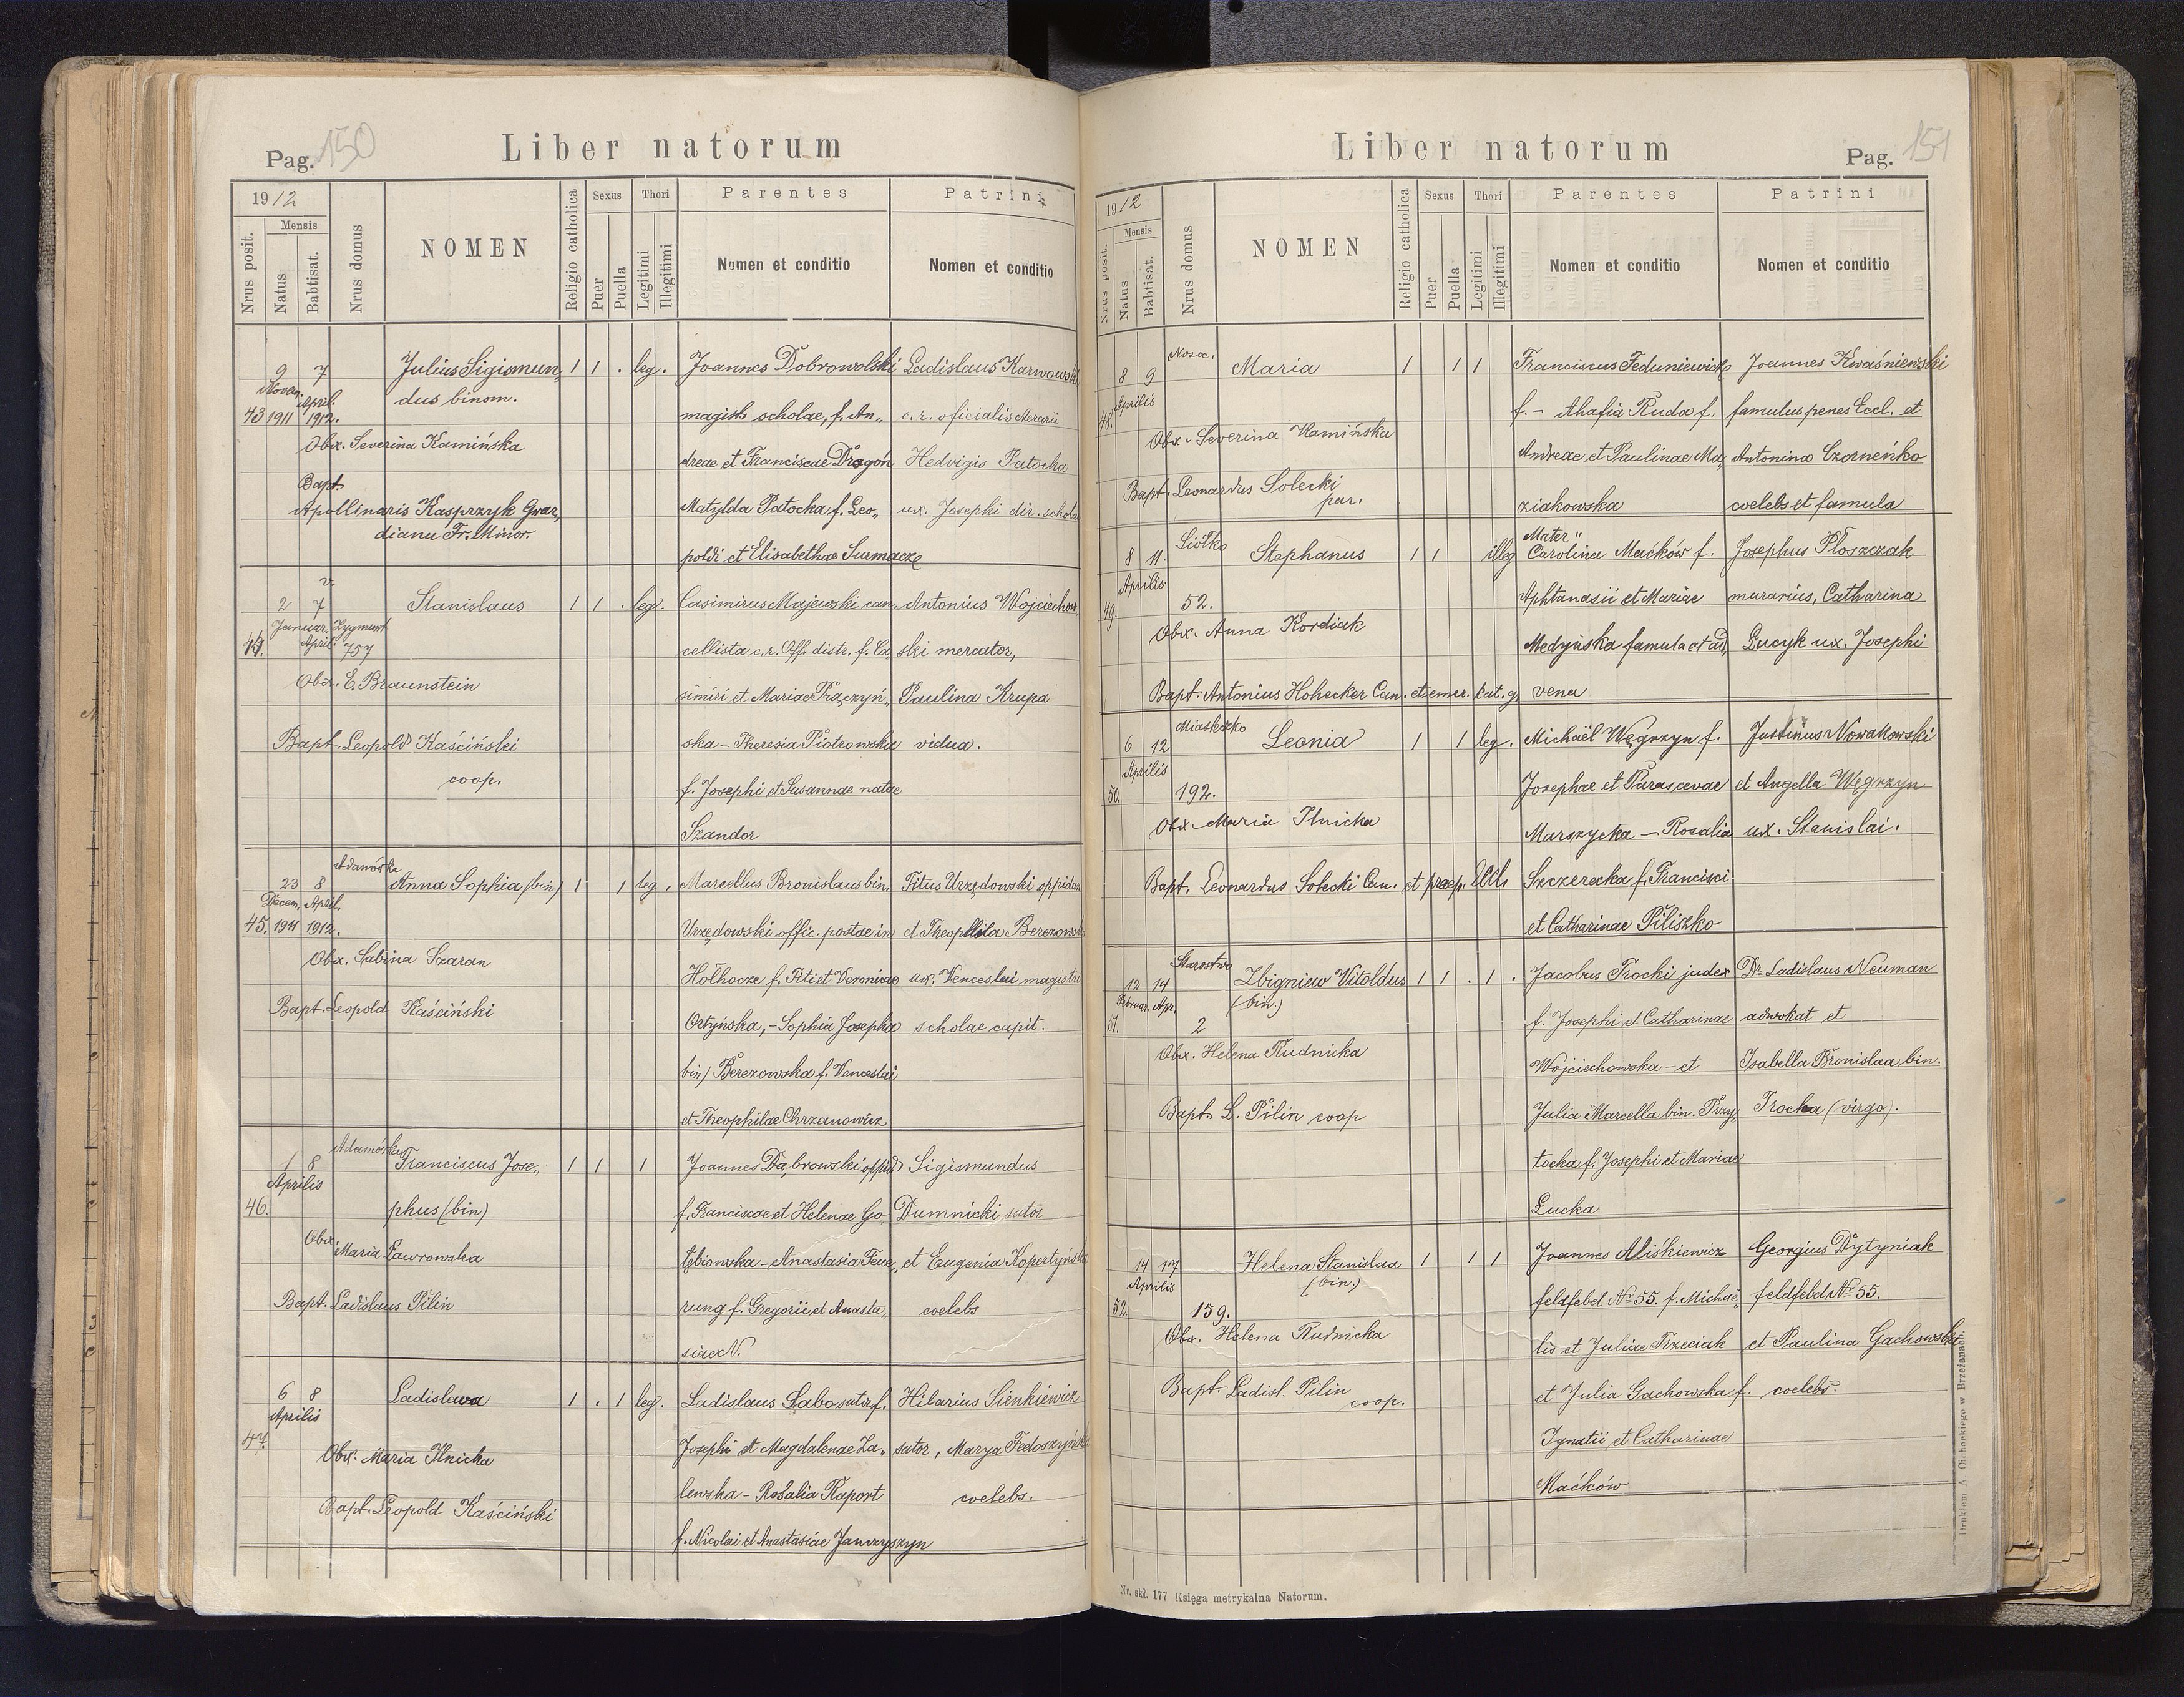 Pag. 150
Liber natorum
1912
Mensis
Nrus posit.
Natus
Babtisat.
Nrus domus
NOMEN
Religio catholica
Sexus
Puer
Puella
Thori
Legitimi
Illegitimi
Parentes
Nomen et conditio
Patrini
Nomen et conditio
9 7 Julius Sigismun„ 1 1 . leg. Joannes Dobrowolski Ladislaus Karwowski
Novem. April. dus binom.
43 1911 1912. magistr scholae, f. An„ c. r. oficialis Aerarii
Obx. Severina Kamińska
dreae et Franciscae Dragoń Hedvigis Patocka
Bapt.
Apollinaris Kasprzyk Gwar„ Matylda Patocka f. Leo„ ux. Josephi dir. schola
dianu Fr. Minor.
poldi et Elisabethae Surmacze
2 7 Stanislaus 1 1 . leg. Casimirus Majewski can„ Antonius Wojciechow
Januar. Zygmunt
44. April. 757 cellista c.r. Off. distr. f. Ca„ ski mercator,
Obx. E. Braunstein simiri et Mariae Prączyń„ Paulina Krupa
Bapt. Leopold Kaściński ska - Theresia Piotrowska vidua.
coop. f. Josephi et Susannae natae
Szandor
Adamówka
23 8 Anna Sophia (bin) 1 1 leg. Marcellus Bronislaus bin. Titus Urzędowski oppidan
Decem. April.
45. 1911 1912. Urzędowski offic. postae in et Theophila Berezowsk
Obx. Sabina Szaran
Hołhocze f. Titi et Veronicae ux. Venceslai magistri
Bapt. Leopold Kaściński Ortyńska, - Sophia Josepha scholae capit.
bin) Berezowska f. Venceslai
et Theophilae Chrzanowicz
Adamówka
1 8 Franciscus Jose„ 1 1 1 Joannes Dąbrowski oppid Sigismundus
Aprilis
46. phus (bin) f. Franciscae et Helenae Go„ Dumnicki sutor
Obx. Maria Ławrowska łębiowska - Anastasia Feue„ et Eugenia Kopertyńska
Bapt. Ladislaus Pilin rung f. Gregorii et Anasta„ coelebs
siae N.
6 8 Ladislava 1 . 1 leg. Ladislaus Sabo sutor f. Hilarius Sienkiewicz
Aprilis
47. Josephi et Magdalenae Za„ sutor, Marya Fedoszyńsk
Obx. Maria Ilnicka
lewska - Rosalia Raport coelebs.
Bapt. Leopold Kaściński
f. Nicolai et Anastasiae Janczyszyn
Liber natorum
Pag. 151
1912
Mensis
Nrus posit.
Natus
Babtisat.
Nrus domus
NOMEN
Religio catholica
Sexus
Puer
Puella
Thori
Legitimi
Illegitimi
Parentes
Nomen et conditio
Patrini
Nomen et conditio
8 9 Maria 1 1 1 Franciscus Feduniewicz Joannes Kwaśniewski
Aprilis
48. f. - Ahafia Ruda f. famulus penes Eccl. et
Obx. Severina Kamińska
Andreae et Paulinae Ma„ Antonina Czorneńko
Bapt. Leonardus Solecki
par. ziakowska coelebs et famula
Siółko Mater"
8 11. Stephanus 1 1 illeg Carolina Maćków f. Josephus Płoszczak
Aprilis
49. 52. Aphtanasii et Mariae murarius, Catharina
Obx. Anna Kordiak
Medyńska famula et ad„ Łucyk ux. Josephi
Bapt. Antonius Hohecker Can. et emer. kat. g. vena
Miasteczko
6 12 Leonia 1 1 leg. Michaël Węgrzyn f. Justinus Nowakowski
Aprilis
50. 192. Josephae et Parascevae et Angella Węgrzyn
Obx. Maria Ilnicka Marszycka - Rosalia ux. Stanislai.
Bapt. Leonardus Solecki Can. et praep. Szczerecka f. Francisci
et Catharinae Piliszko
Starostwo
12 14 Zbigniew Vitoldus 1 1 . 1 . Jacobus Trocki judex Dr. Ladislaus Neuman
Februar. Apr. (bin.)
51. 2 f. Josephi et Catharinae adwokat et
Obx. Helena Rudnicka Wojciechowska - et Isabella Bronislaa bin.
Bapt. L. Pilin coop Julia Marcella bin. Przy„ Trocka (virgo).
tocka f. Josephi et Mariae
Łucka
14 17 Helena Stanislaa 1 1 1 Joannes Aliśkiewicz Georgius Dytyniak
Aprilis (bin.)
52. 159. feldfebel No 55. f. Michaë„ feldfebel No 55.
Obx. Helena Rudnicka
lis et Juliae Trzeciak et Paulina Gachowska
Bapt. Ladisl. Pilin
coop. et Julia Gachowska f. coelebs.
Ignatii et Catharinae
Maćków
Nr. skł. 177 Księga metrykalna Natorum.
Drukiem A. Cichockiego w Brzeżanach.